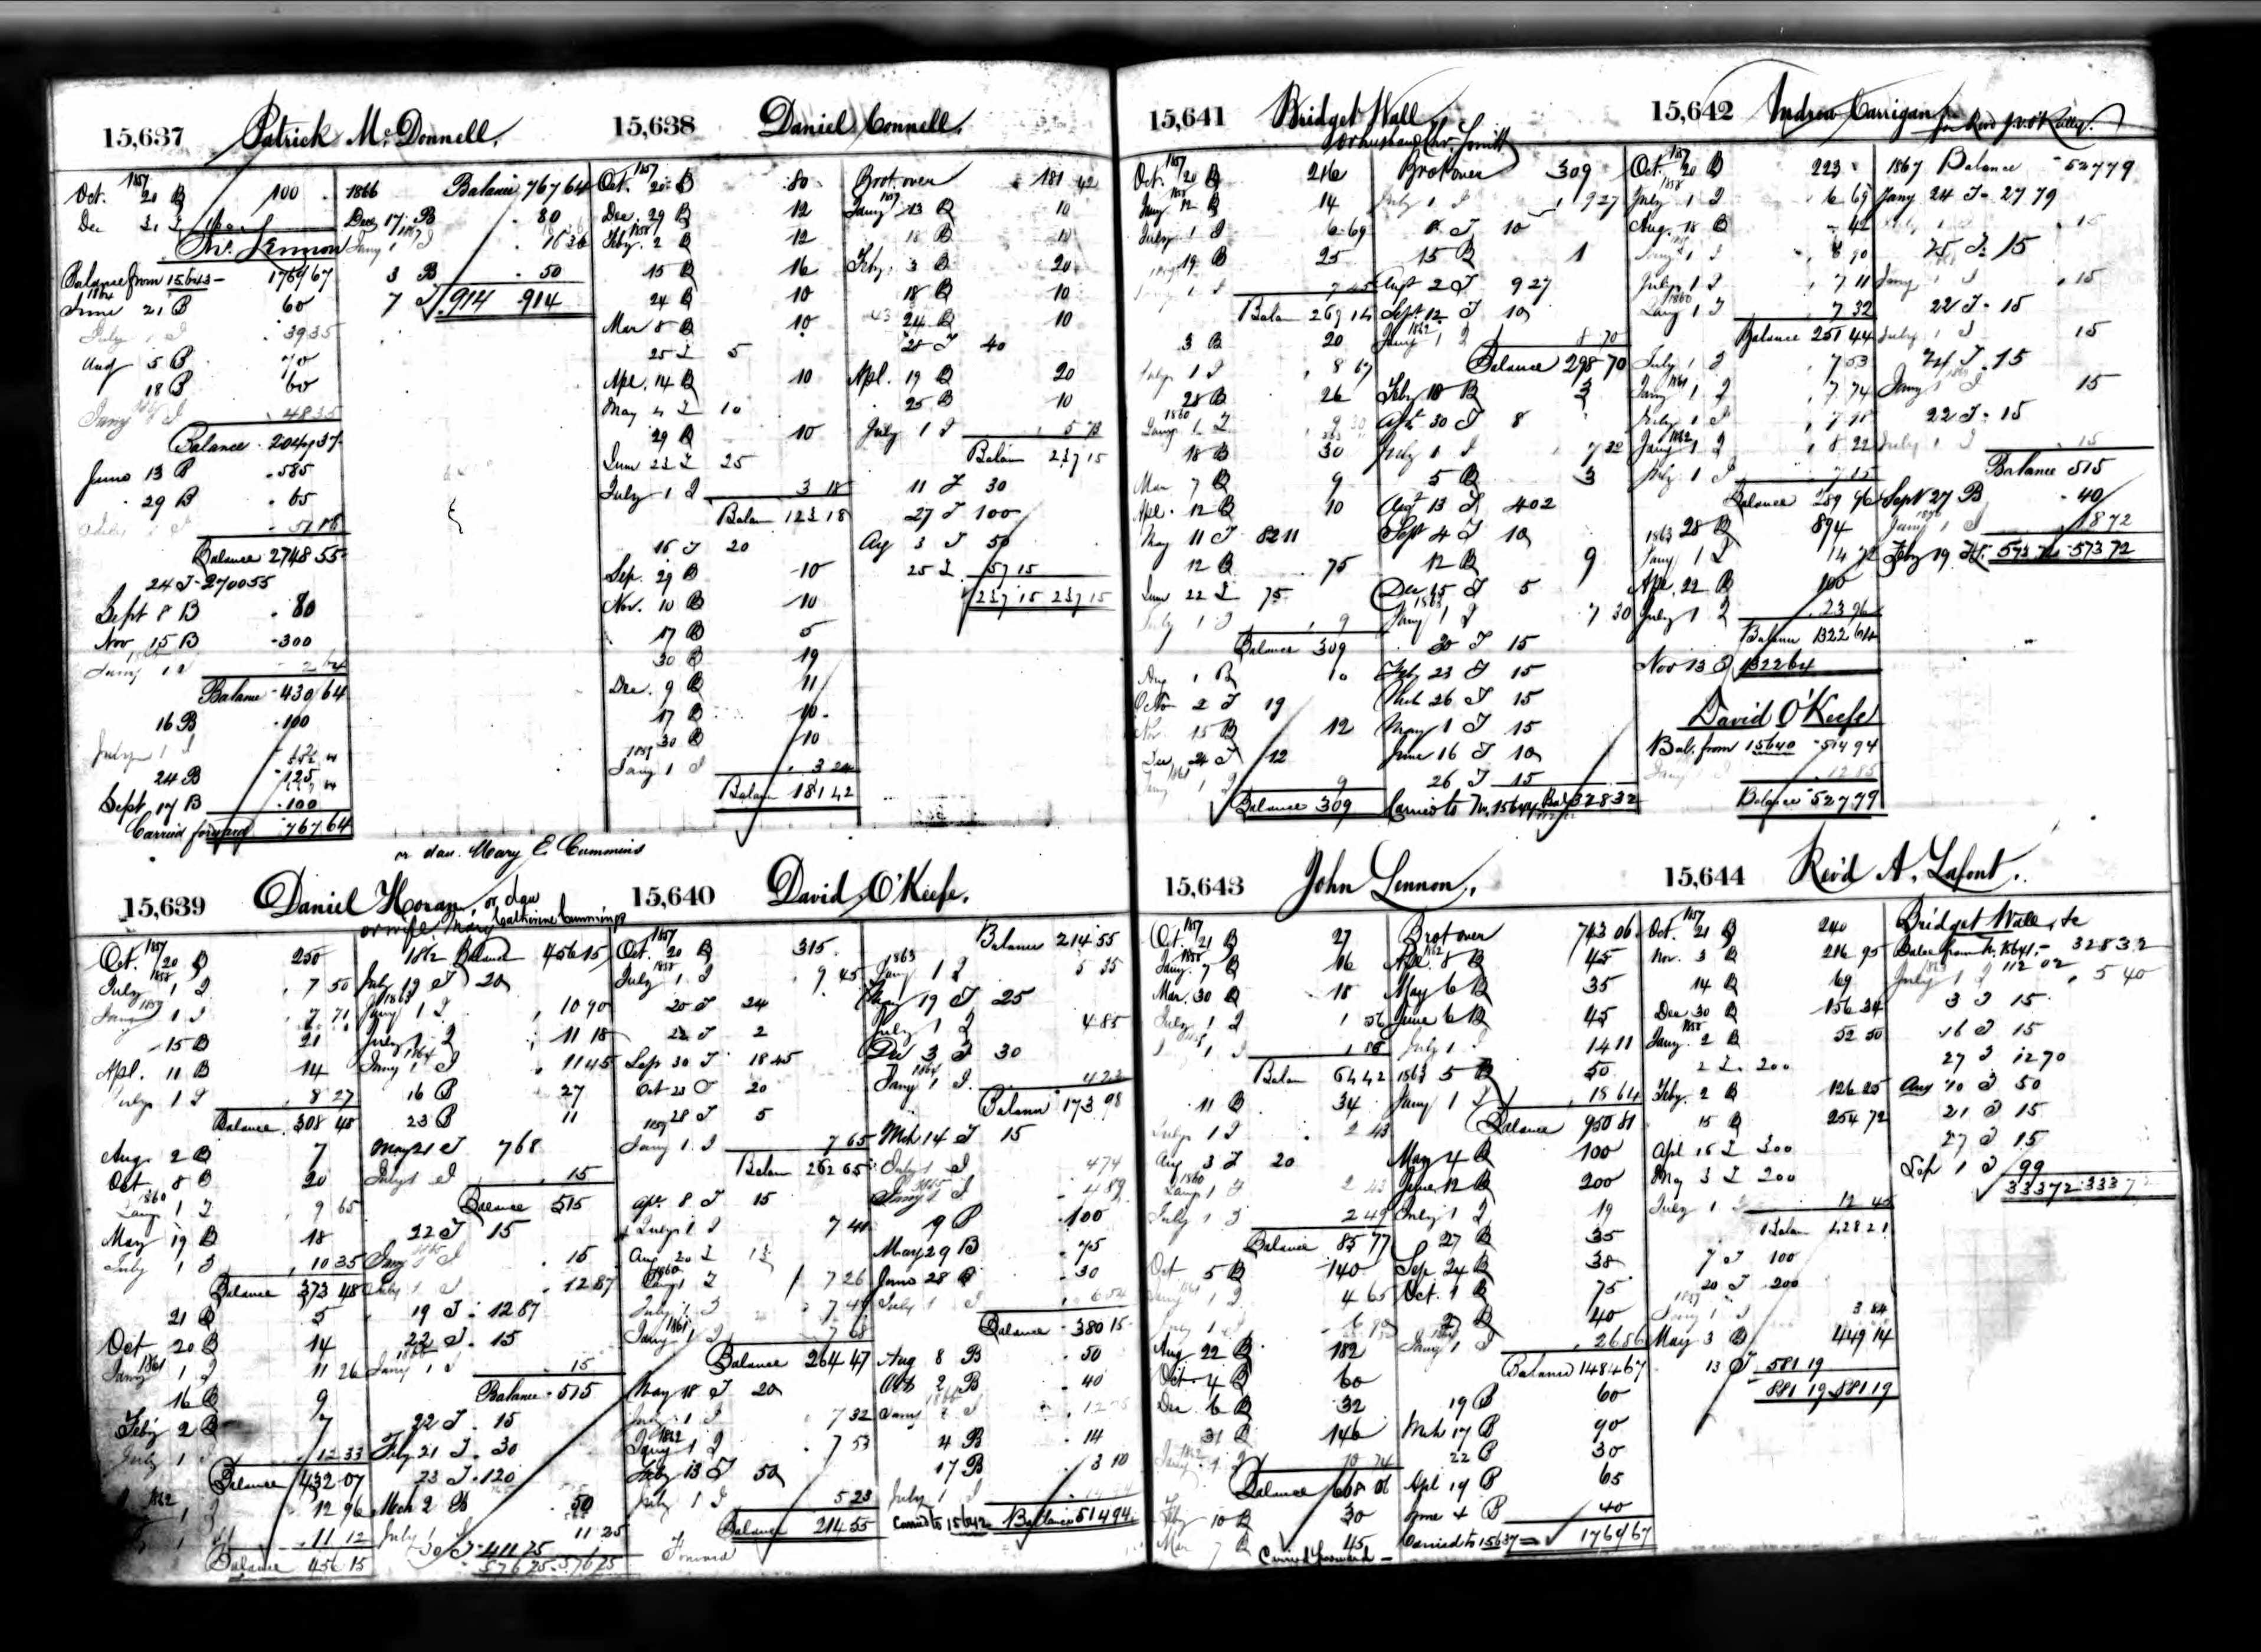 15,637 Patrick McDonnell.
1857
Oct. 20 B 100
Dec 31 I 160
Jno. Lennon
Balance from 15643 - 1769 67
1864
June 21 B 60
July 1 I 39 35
Aug 5 B 70
18 B 60
Jany 1 I 48 35
Balance 2047 37
June 13 B 585
29 B 65
July 1 I
Balance 2748 55
24 I 2700 55
Sept 8 B 80
Nov 15 B 300
Jany 1 I 2 64
Balance 430 64
16 B 100
July 1 I
24 B 125
Sept 17 B 100
Carried forward 767 64
1866 Balance 767 64
Dec 17 B 80
1867
Jany 1 I 16 36
3 B 50
7 I 914 914
15,638 Daniel Connell.
1857
Oct. 20 B 80
Dec. 29 B 12
1858
Feby. 2 B 12
15 B 16
24 B 10
Mar 8 B 10
25 I 5
Apl. 14 B 10
May 4 I 10
29 B 10
June 23 I 25
July 1 I 3 18
Balan 123 18
16 I 20
Sep. 29 B 10
Nov. 10 B 10
17 B 5
30 B 19
Dec. 9 B 11
17 B 10
30 B 10
1859
Jany 1 I 3 24
Balan 181 42
Brot. over 181 42
Jany 13 B 10
18 B 10
Feby. 3 B 20
18 B 10
24 B 10
28 I 40
Apl. 19 B 20
25 B 10
July 1 I 5 73
Balan 237 15
11 I 30
27 I 100
Ag 3 I 50
25 I 57 15
237 15 237 15
or dau. Mary E Cummins
15,639 Daniel Horan, or dau
Catherine Cummings
or wife Mary
1857
Oct. 20 B 250
1858
July 1 I 7 50
1859
Jany 1 I 7 71
15 B 21
Apl. 11 B 14
July 1 I 8 27
Balance 308 48
Aug. 2 B 7
Oct 8 B 20
1860
Jany 1 I 9 65
May 19 B 18
July 1 I 10 35
Balance 373 48
21 B 5
Oct 20 B 14
1861
Jany 1 I 11 26
16 B 9
Feby 2 B 7
July 1 I 12 33
Balance 432 07
1862
1 I 12 96
11 12
Balance 456 15
1862 Balance 456 15
July 19 I 20
1863
Jany 1 I 10 90
July 1 I 11 18
1864
Jany 1 I 11 45
16 B 27
23 B 11
May 21 I 7 68
July 1 I 15
Balance 515
22 I 15
Jany 1 I 15
July 1 I 12 87
19 I 12 87
22 I 15
Jany 1 I 15
Balance 515
22 I 15
Feby 21 I 30
23 I 120
Mch 2 B 50
July 1 11 25
30 I 411 25
576 25 576 25
15,640 David O'Keefe.
1857
Oct. 20 B 315
1858
July 1 I 9 45
20 I 24
22 I 2
Sep 30 I 18 45
Oct 23 I 20
28 I 5
1859
Jany 1 I 7 65
Balan 262 65
Apl. 8 I 15
July 1 I 7 41
Aug 20 I 13
1860
Jany 1 I 7 26
July 1 I
1861
Jany 1 I 7 68
Balance 264 47
May 18 I 20
July 1 I 7 32
1862
Jany 1 I 7 53
July 13 I 50
July 1 I 5 23
Balance 214 55
Forward
Balance 214 55
1863
Jany 1 I 5 35
May 19 I 25
July 1 I 4 85
Dec 3 I 30
1864
Jany 1 I 4 23
Balance 173 98
Mch 14 I 15
July 1 I 4 74
1865
Jany 1 I 4 89
9 B 100
May 29 B 75
June 28 B 30
July 1 I 6 54
Balance 380 15
Aug 8 B 50
Oct 2 B 40
Jany 1 I
4 B 14
17 B 3 10
July 1 I
Carried to 15642 Balance 514 94
15,641 Bridget Wall,
or husband Chr. Smith
1857
Oct. 20 B 216
1858
Jany 12 B 14
July 1 I 6 69
19 B 25
1 I 7 45
Balan 269 14
3 B 20
July 1 I 8 67
28 B 26
1860
Jany 1 I 9 30
18 B 30
Mar 7 B 9
Apl. 12 B 10
May 11 I 82 11
12 B 75
June 22 I 75
July 1 I 9
Balance 309
Aug 1 B 10
Octo 2 I 19
Nov 15 B 12
Dec 24 I 12
1861
1 I 9
Balance 309
Brot over 309
July 1 I 9 27
6 I 10
15 B 1
Augt 2 I 9 27
Sept. 12 I 10
1862
Jany 1 I 8 70
Balance 298 70
Feby 18 B 3
Apl. 30 I 8
July 1 I 7 32
5 B 3
Augt 13 I 4 02
Sept 4 I 10
12 B 9
Dec 15 I 5
1863
Jany 1 I 7 30
30 I 15
Feb 23 I 15
Mch 26 I 15
May 1 I 15
June 16 I 10
26 I 15
Carried to No. 15644 Bal 328 32
15,642 Andrew Carrigan for Revd J. O'Reilly.
1857
Oct. 20 B 223
1858
July 1 I 6 69
Aug. 18 B 42
Jany 1 I 6 90
July 1 I 7 11
1860
Jany 1 I 7 32
Balance 251 44
July 1 I 7 53
1861
Jany 1 I 7 74
July 1 I
1862
Jany 1 I 8 22
July 1 I 7 15
Balance 289 96
28 B 894
1863
Jany 1 I 14 72
Apl. 22 B 100
July 1 I 23 96
Balance 1322 64
Nov 13 I 1322 64
David O'Keefe
Bal. from 15640 514 94
Jany 12 85
Balance 527 79
1867 Balance 527 79
Jany 24 I 27 79
July 1 I 15
25 I 15
Jany 1 I 15
22 I 15
July 1 I 15
24 I 15
Jany 1 I 15
22 I 15
July 1 I 15
Balance 515
Sept 27 B 40
Jany 1 I 18 72
Feby 19 I 573 72 573 72
15,643 John Lennon,
1857
Oct. 21 B 27
1858
Jany. 7 B 16
Mar. 30 B 18
July 1 I 1 56
1 I 1 86
Balan 64 42
11 B 34
July 1 I 2 43
Aug 3 I 20
1860
Jany 1 I 2 43
July 1 I 2 49
Balance 85 77
Oct 5 B 140
Jany 1 I 4 65
July 1 I
Aug 22 B 182
Oct. 4 B 60
Dec 6 B 32
31 B 146
1862
Jany 1 I 10 74
Balance 668 06
Feby 10 B 30
Mar 7 B 45
Carried forward -
Brot over 743 06
1862
Apl. 8 B 45
May 6 B 35
June 6 B 45
July 1 I 14 11
5 B 50
1863
Jany 1 I 18 64
Balance 950 81
May 4 B 100
June 12 B 200
July 1 I 19
27 B 35
Sep 24 B 38
Oct. 1 B 75
27 B 40
Jany 1 I 26 86
Balance 1484 67
19 B 60
Mch 17 B 90
22 B 30
Apl 19 B 65
June 4 B 40
Carried to 15637 1769 67
15,644 Rev'd A. Lafont.
1857
Oct. 21 B 240
Nov. 3 B 216 95
14 B 69
Dec 30 B 156 34
1858
Jany. 2 B 52 50
2 I 200
Feby. 2 B 126 25
15 B 254 72
Apl 15 I 300
May 3 I 200
July 1 I 12 45
Balan 428 21
7 I 100
20 I 200
1859
Jany 1 I 3 84
May 3 B 449 14
13 I 581 19
881 19 881 19
Bridget Wall, &c
Balce from No. 15641 - 328 32
1863
July 1 I 5 40
3 I 15
16 I 15
27 I 12 70
Aug 10 I 50
21 I 15
27 I 15
Sep 1 I 99
333 72 333 72